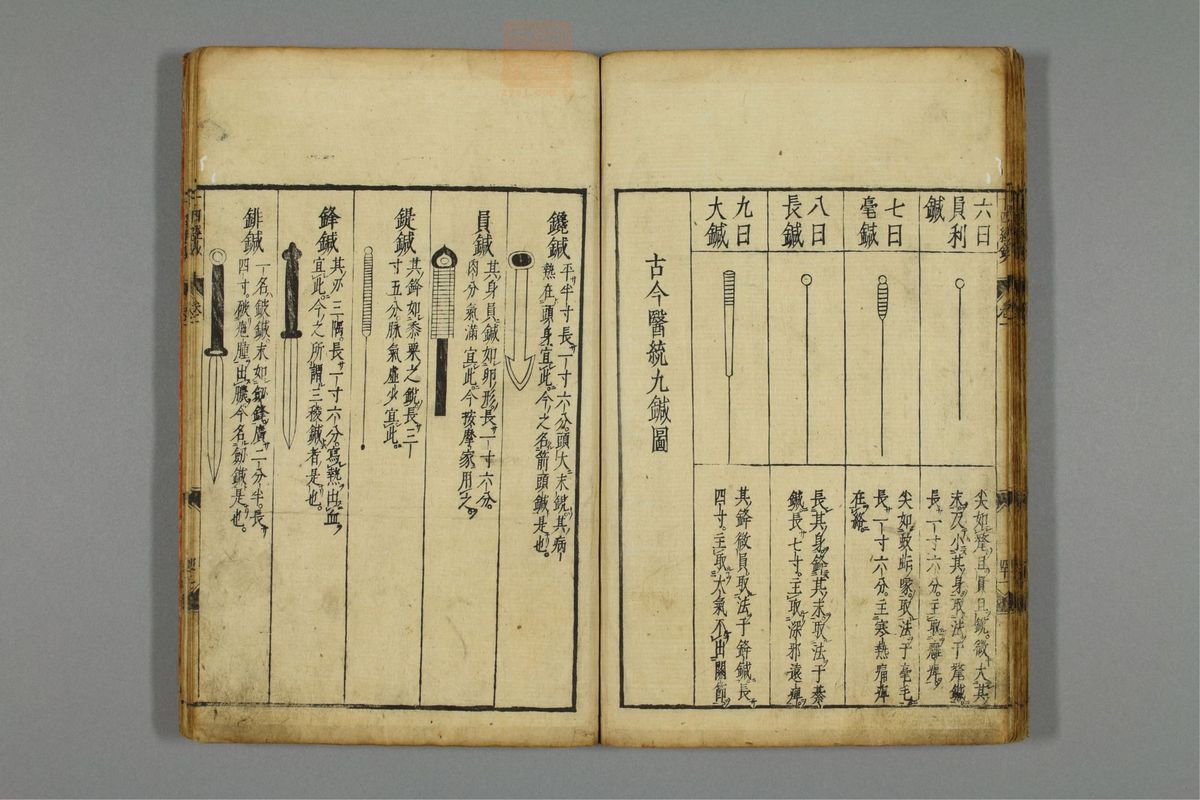 六曰
員利
鍼
尖如氂且員且銳微大其
末反小其身取法于氂鍼
長一寸六分主取癰痺
七曰
毫鍼
尖如蚊虻喙取法于毫毛
長一寸六分主寒熱痛痺
在絡
八曰
長鍼
長其身鋒其末取法于綦
鍼長七寸主取深邪遠痺
九曰
大鍼
其鋒微員取法于鋒鍼長
四寸主取大氣不出關節
古今醫統九鍼圖
鑱鍼
平半寸長一寸六分頭大末銳其病
熱在頭身宜此今之名箭頭鍼是也
員鍼
其身員鍼如卵形長一寸六分
肉分氣滿宜此今按摩家用之
鍉鍼
其鋒如黍粟之銳長三
寸五分脉氣虛少宜此
鋒鍼
其刃三隅長一寸六分寫熱出血
宜此今之所謂三稜鍼者是也
鈹鍼
一名鈹鍼末如劔鋒廣二分半長
四寸破癰腫出膿今名劔鍼是也